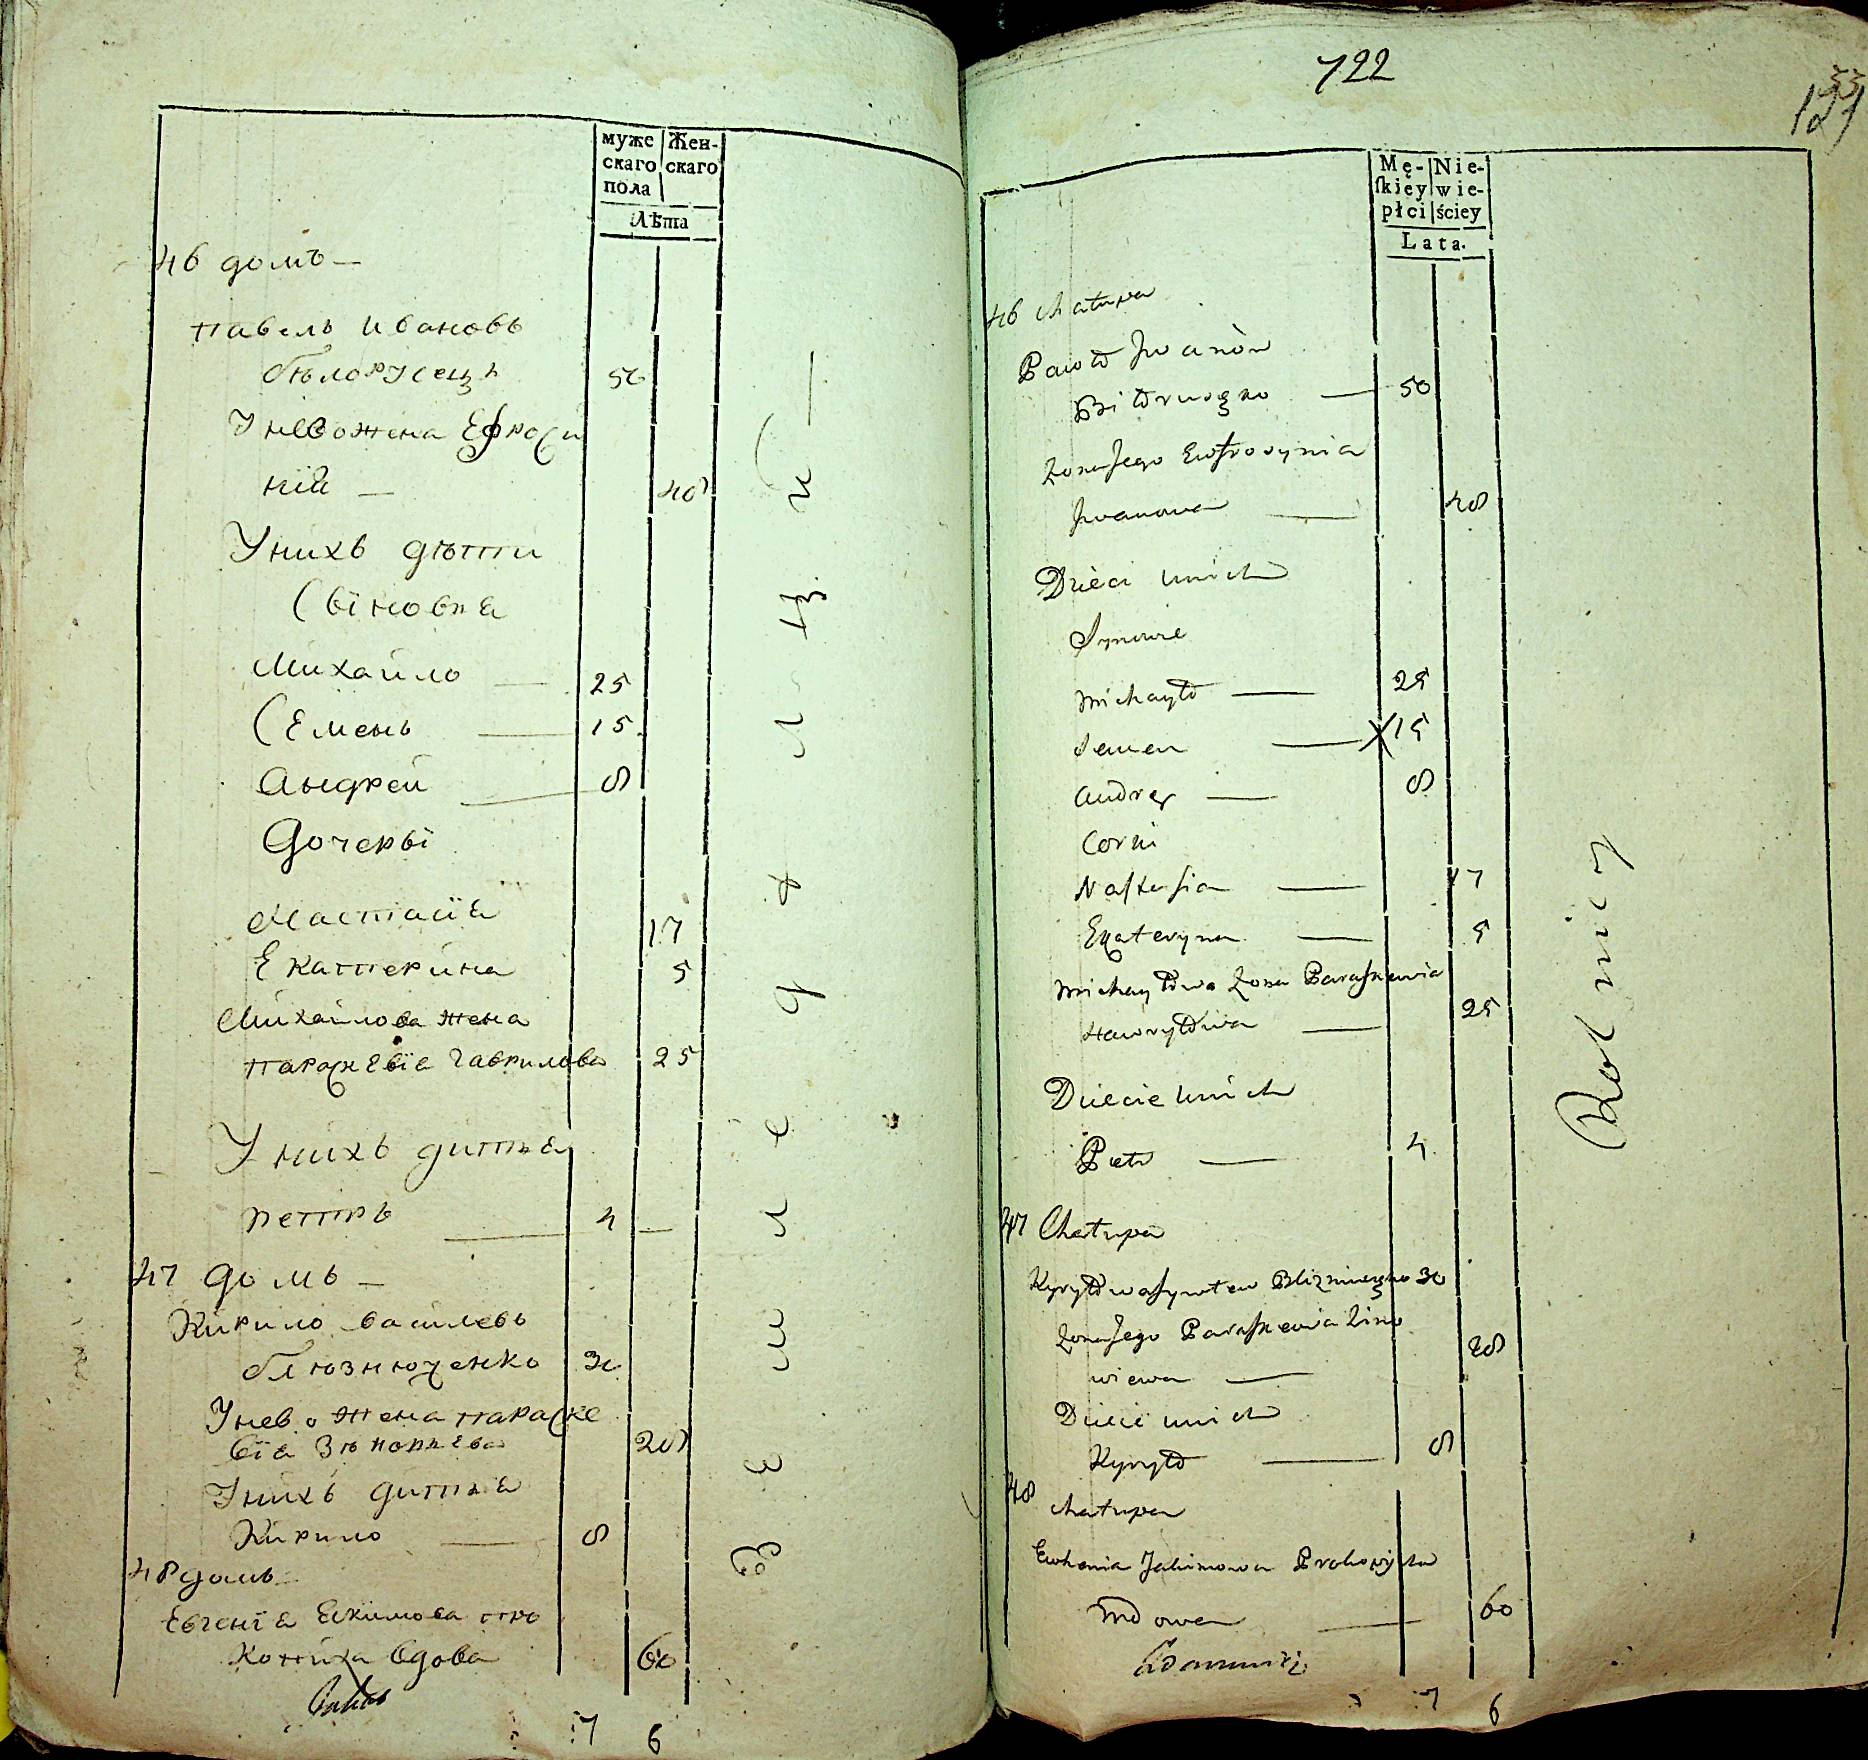 муже
скаго
пола
Жен-
скаго
Лѣта
46 домъ —
павелъ Ивановъ
бѣлорусецъ 50
У нево жена Ефроси
нїя — 48
У нихъ дѣтти
Сїновья
Михайло — 25
Семенъ — 15
Андрей — 8
Дочерьї
Настасїя 17
Екатерина 5
Михайлова жена
параскевїя Гаврилова 25
У нихъ диттья
петтръ — 4 —
47 домъ —
Кирило василевъ
блюзнюченко 30
У нево жена параске
вїя Зѣновьева 28
У нихъ дитья
Кирило — 8
48 домъ
Евгенїя Екимова про
копиха вдова 60
7 6
Землед
722
121
Mę-
skiey
płci
Nie-
wie-
ściey
Lata.
46 chałupa
Paweł Iwanów
Biłoruseko — 50
Zona Jego Ewfrosynia
Iwanowa — 48
Dzieci unich
Synowie
Michayło — 25
Semen — X 15
Andrey — 8
Corki
Nastasia — 17
Ekateryna — 5
Michayłowa Zona Paraskewia
Hawryłowa — 25
Dziecie unich
Piotr — 4
47 Chałupa
Kyryło wasylew Blizniuczenko 30
Zona Jego Paraskewia Zino
wiewa — 28
Dziecie unich
Kyryło — 8
48 chałupa
Ewhenia Jakimowa Prokopicha
Wdowa — 60
7 6
Rolnicy